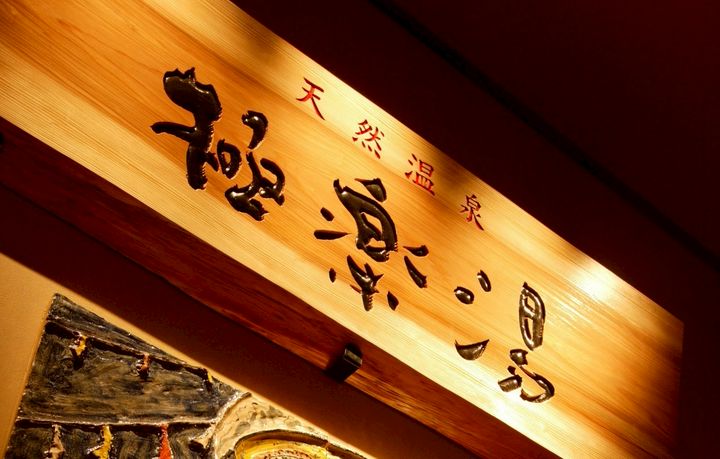 天然温泉
極楽湯